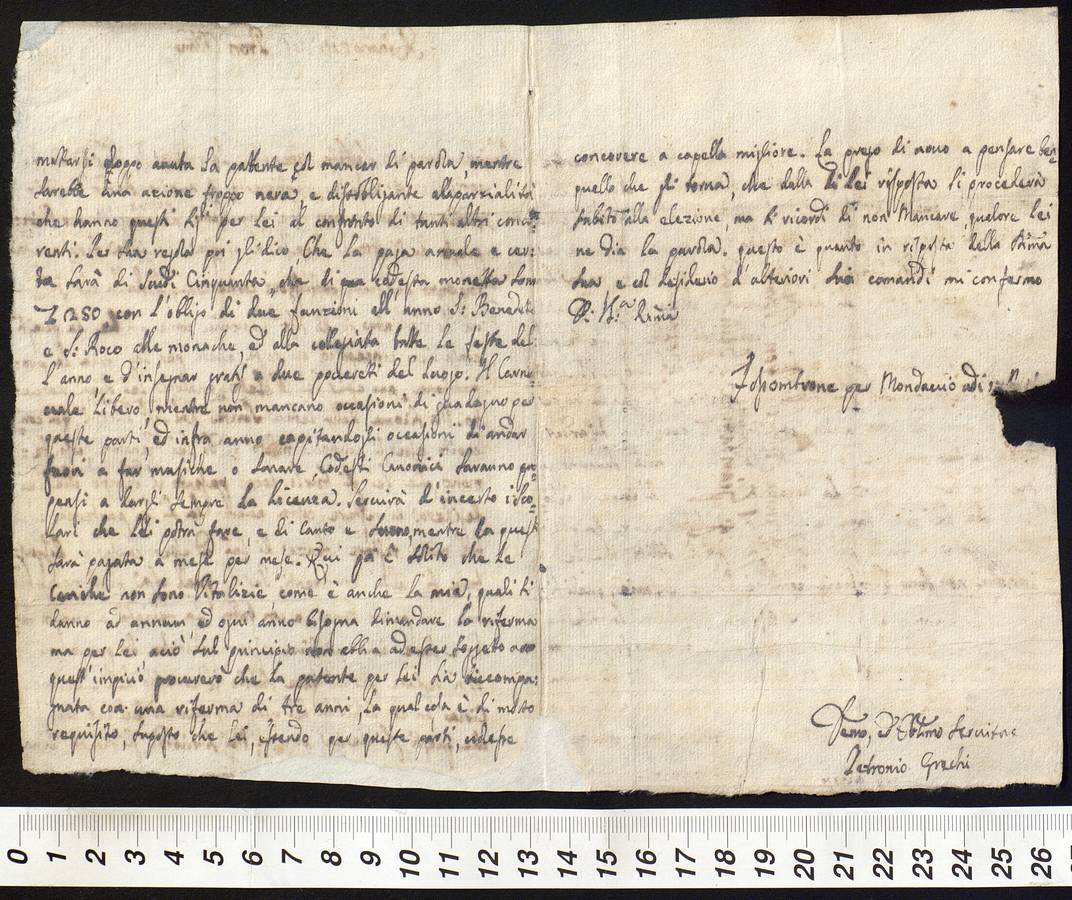 mettersi doppo auuta la pattente col mancar di parola, mentre
sarebbe una azione troppo nera, e disobbligante alla parzialità
che hanno questi SS.i per lei al confronto di tanti altri concor=
renti. Per sua regola poi gli dico Che la paga annale e cer=
ta sarà di Scudi Cinquanta, che di codesta monetta son
250, con l'obligo di due funzioni all'anno S: Benedeto
e S: Roco alle monache, ed alla collegiata tutte le feste del
l'anno e d'insegnar gratis a due poueretti del luogo. Il Carne=
uale libero mentre non mancano occasioni di guadagno per
queste parti, ed infra anno capitandogli occasioni di andar
fuori a far musiche, o sonare, Codesti Canonici saranno pro=
pensi a dargli sempre la licenza. Seruirà d'incerto i sco=
lari che lei potrà fare, e di Canto e suono, mentre la
sarà pagata a mese per mese. Qui pa è solito che le
Cariche non sono Vitalizie, come è anche la mia, quali si
danno ad annum, ed ogni anno bisogna dimandare la riferma
ma per lei aciò sul principio non abbia ad esser soggetto a
quest'impicio procurerò che la patente per lei sia accompa=
gnata con una riferma di tre anni, la qual cosa è di molto
requisito, suposto che lei, essendo per queste parti, uolesse
concorere a capella migliore. La prego di nouo a pensare ben
quello che gli torna, che dalla di lei risposta si procederà
subito alla elezione, ma si ricordi di non mancare, qualora lei
ne dia la parola. questo è quanto in risposta della
sua e col desiderio d'ulteriori suoi comandi mi confermo
Fossombrone per Mondauio adi
Deuo, ed Obblmo Seruitore
Petronio Grechi
0 1 2 3 4 5 6 7 8 9 10 11 12 13 14 15 16 17 18 19 20 21 22 23 24 25 26